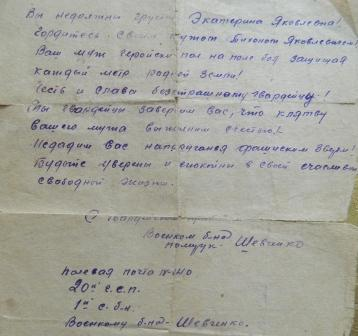 Вы недолжны грустить Екатерина Яковлевна!
Гордитесь своим мужом Тихоном Яковлевичем
Ваш муж геройски пал на поле боя защищая
каждый метр родной Земли!
Честь и слава безстрашному гвардейцу!
Мы гвардейцы заверяем Вас, что клятву
вашего мужа выполним с честью!
Недадим Вас на фашиским Зверям!
Будьте уверены и спокойны в своей счастливой
свободной жизни.
С гвардейским
Военком б-на
политрук - Шевченко
Полевая почта №
20й с.с.п.
1й с.б-н.
Военкому б-на - Шевченко.